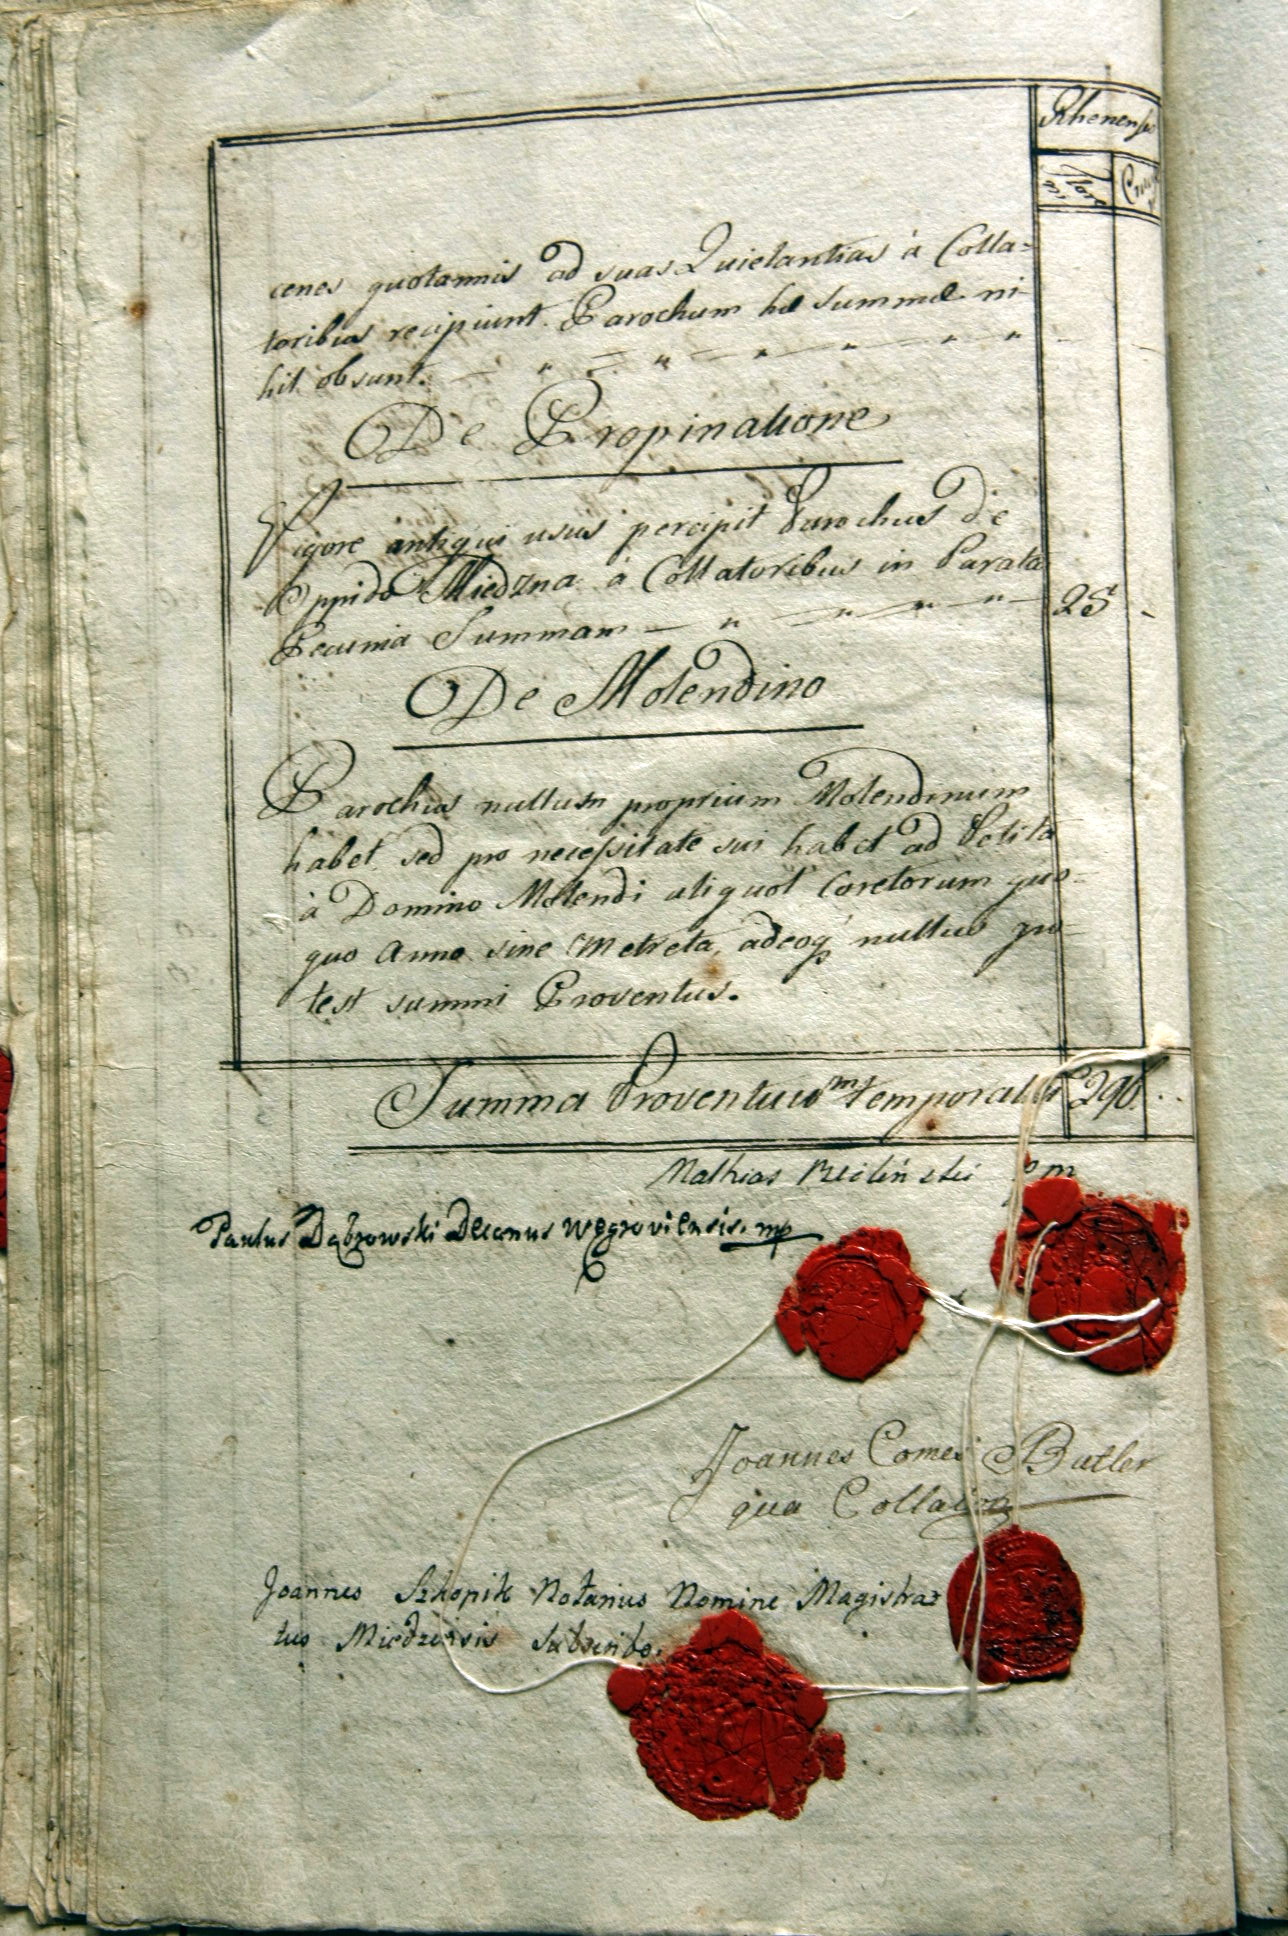 Rhenenses
Flore
nis
Cruc
cenes quotannis ad suas Quietantias à Colla=
toribus recipiunt. Parochum hæ Summæ ni
hil obsunt.
De Propinatione
Vigore antiqui usus percipit Parochus de
Oppido Miedzna à Collatoribus in Parata
Pecunia Summam 25 -
De Molendino
Parochus nullum proprium Molendinum
habet, sed pro necessitate sui habet ad Petita
à Domino Molendi aliquot Coretorum quo=
quo Anno sine Metreta, adeoq nullus po=
test summi Proventus.
Summa Proventuum temporalis 296
Mathias mp
Paulus Dąbrowski Decanus Węgroviensis. mp
Joannes Comes Butler
qua Collator
Joannes Szkopik Notarius Nomine Magistra=
tus Miedznensis Subscribo.